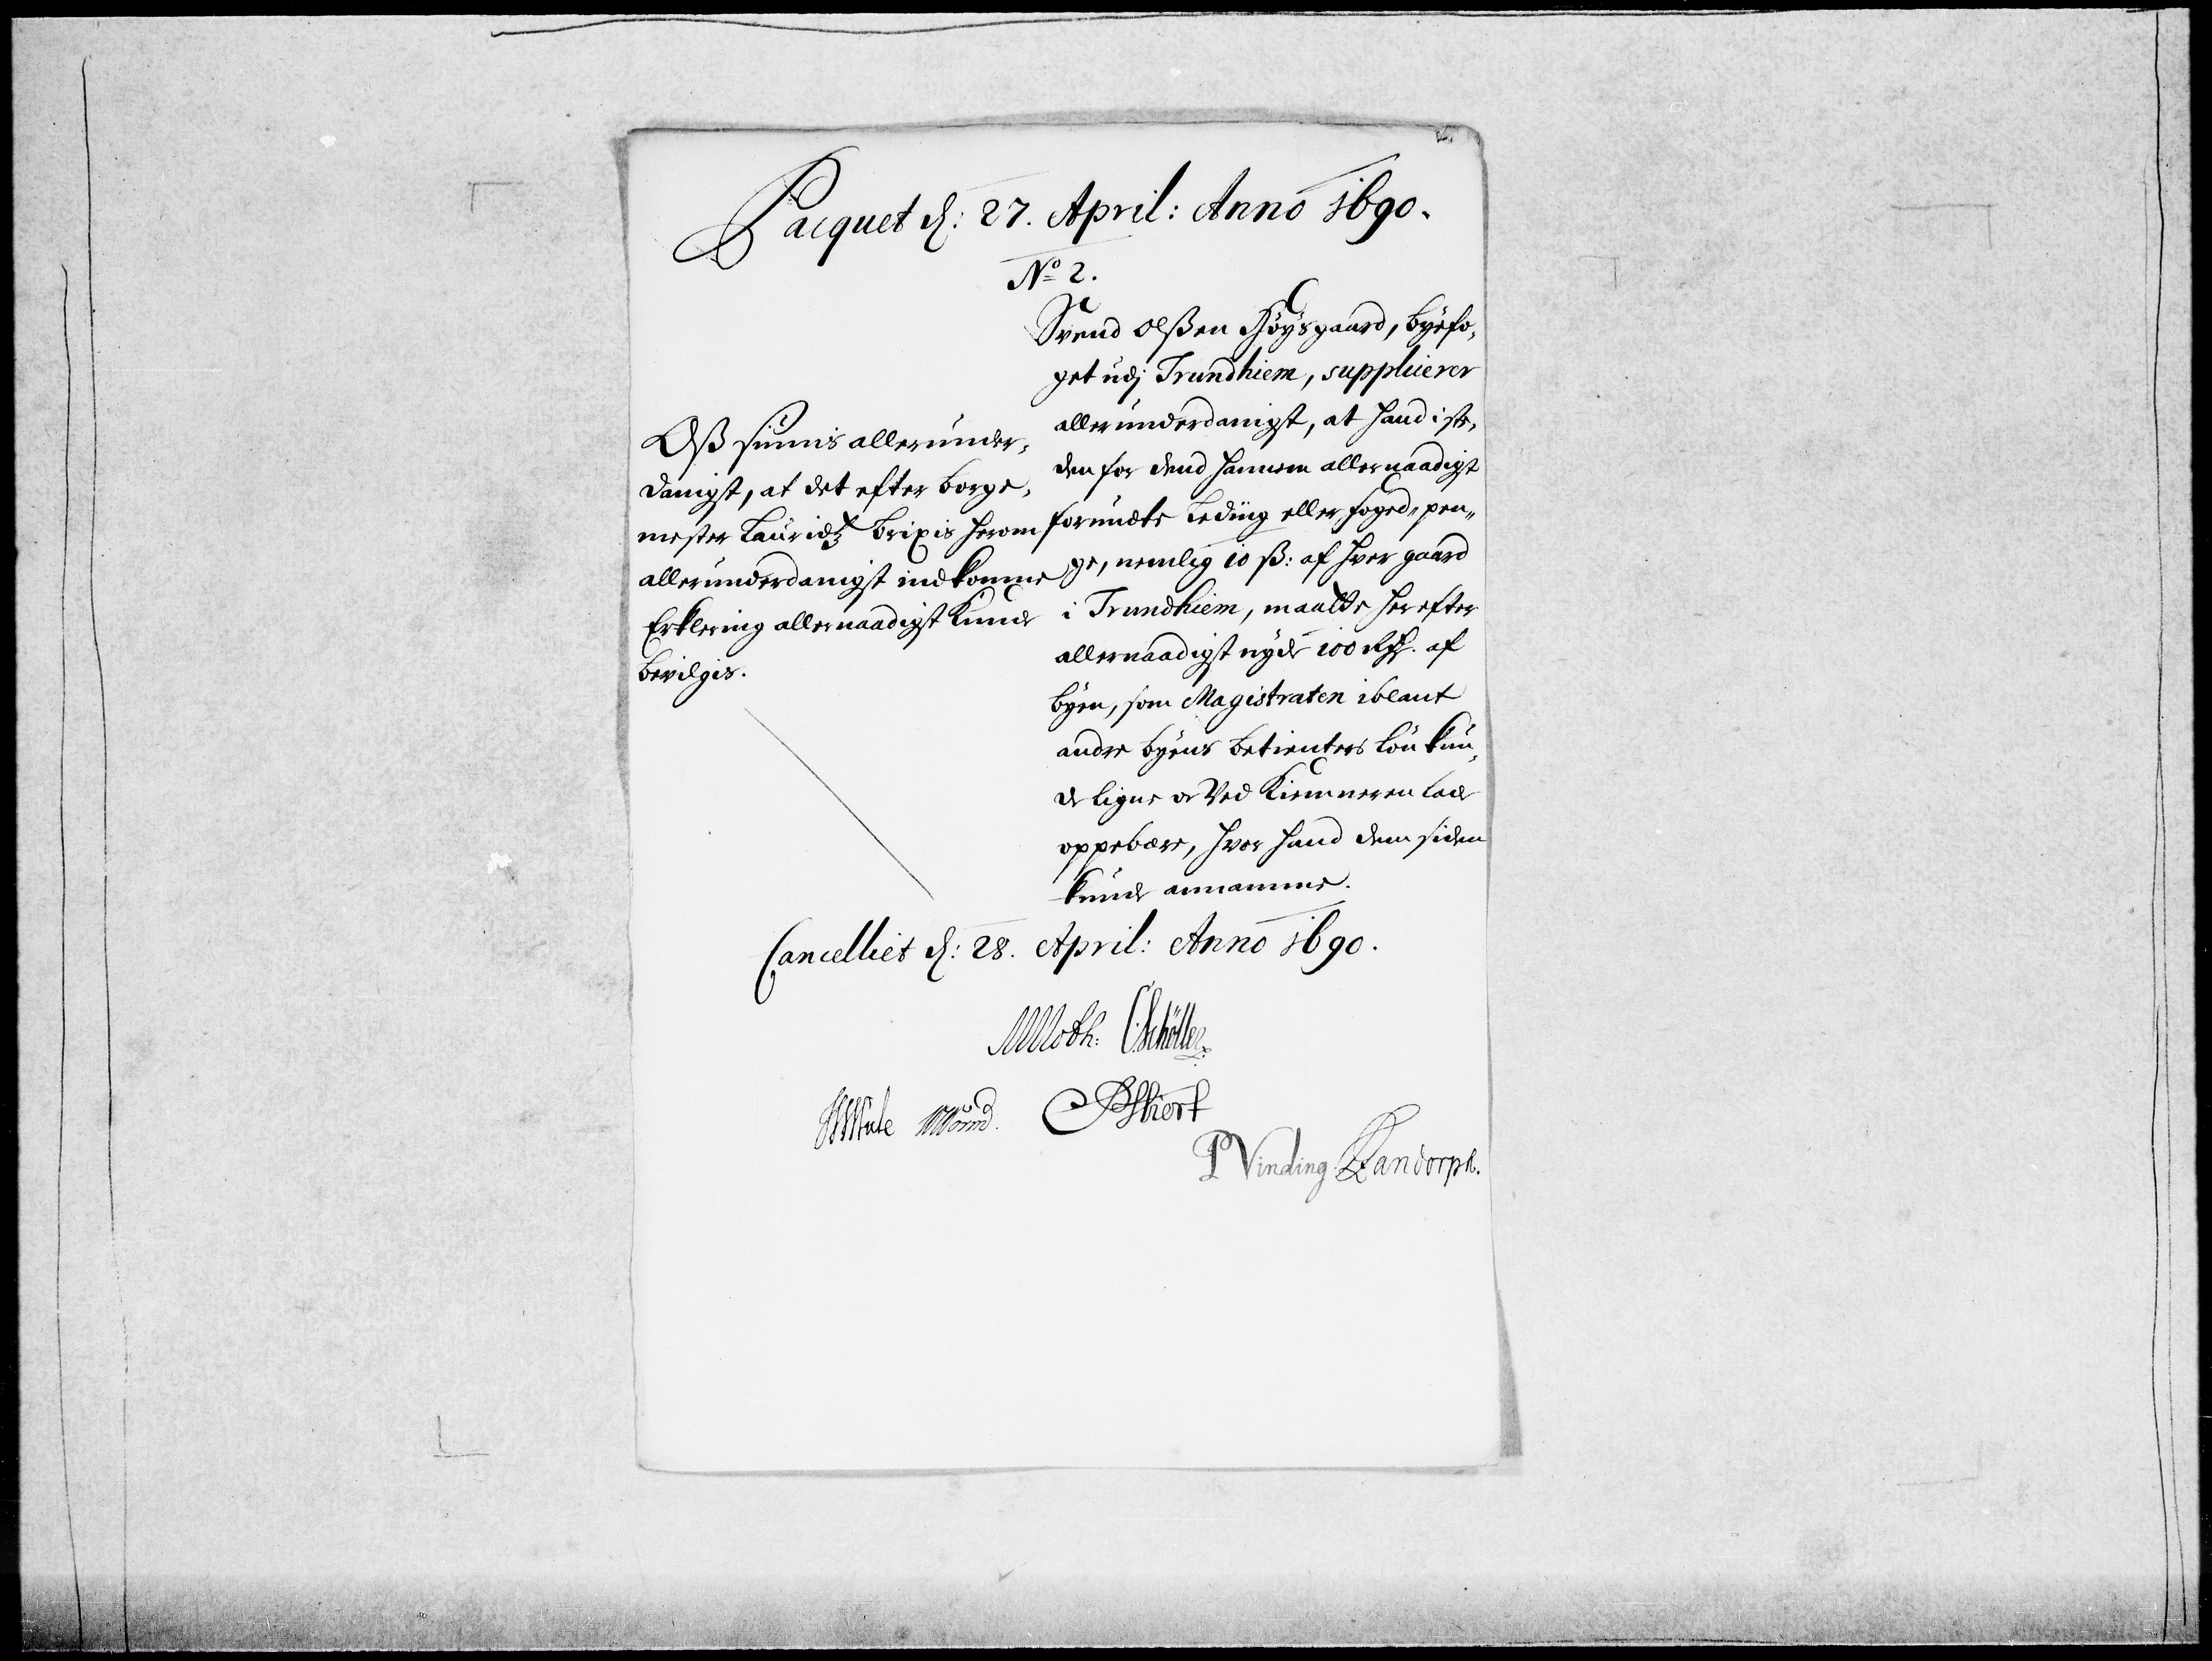 Pacquet d: 27. April: Anno 1690.
No 2.
Svend Olßen Høysgaard, byefo,
get udj Trundhiem, supplicerer
allerunderdanigst, at hand i ste,
den for dend hannem allernaadigst
forundte Leding eller foged, pen,,
ge, nemlig 10 ß: af hver gaard
i Trundhiem, maatte herefter
allernaadigst nyde 100 Rdr. af
byen, som Magistraten iblant
andre byens betienters løn kun,
de ligne og ved Kiemneren lade
oppebære, hvor hand dem siden
kunde annamme.
Oß siunis allerunder,
danigst, at det efter borge,
mester Lauridtz Brixis herom
allerunderdanigst indkomne
Erklering allernaadigst kunde
bevilgis.
Cancelliet d: 28. April: Anno 1690.
MMoth: CSchøller
WWorm.
PVinding Landorph.